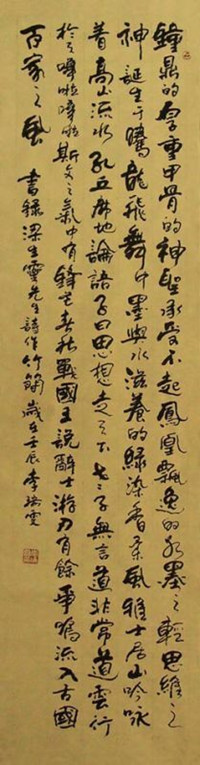 鐘鼎的厚重甲骨的神聖承受不起鳳凰飄逸的水墨之輕思維之
神誕生于騰龍飛舞中墨與水滋養的綠染香柔風雅士居山吟咏
着高山流水孔丘席地論語子曰思想走天下老子無言道非常道雲行
於天嘩啦嘩啦斯文之氣中有鋒芒春秋戰國王說醉士游刃有餘流入古國
百家之風 書錄梁生靈先生詩作竹簡 歲在壬辰李瑞雯